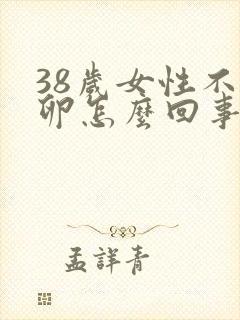 38歲女性不
卵怎麼回事
孟詳青